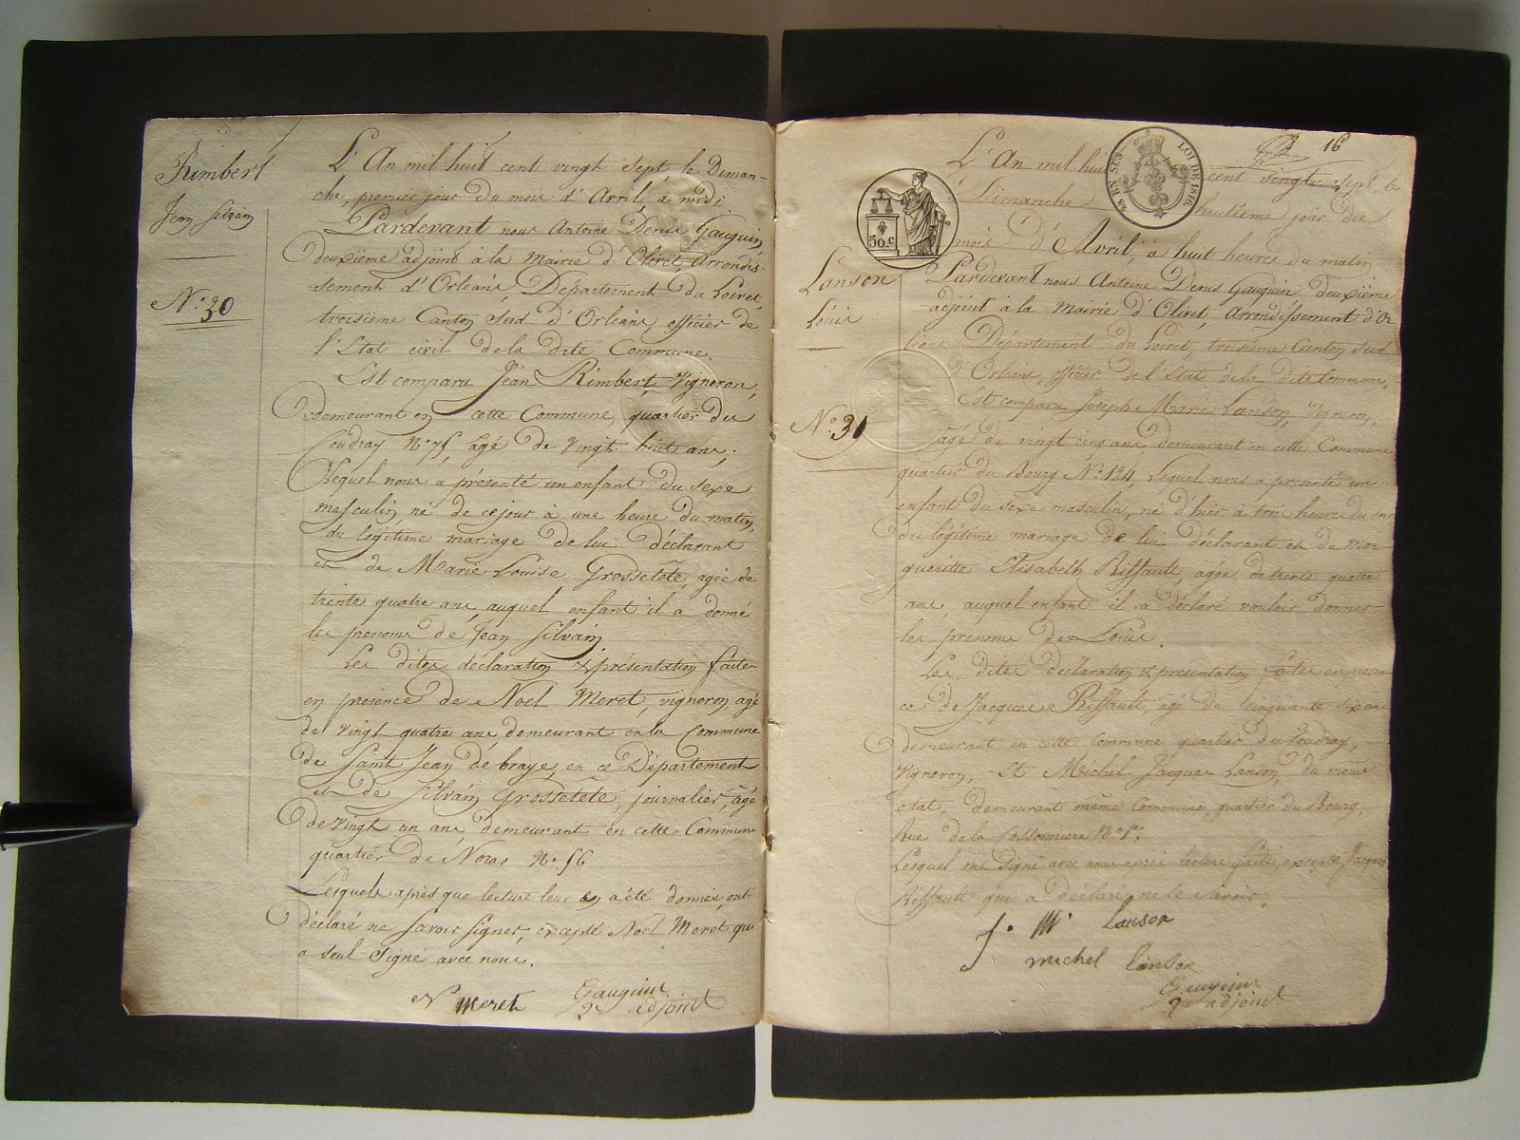 Rimbert
Jean Silvain
N.° 30
L'An mil huit cent vingt sept le Diman-
che, premier jour du mois d'Avril, à midi
Pardevant nous Antoine Denis Gauguin,
deuxième adjoint à la Mairie d'Olivet, Arrondis-
sement d'Orléans, Département du Loiret,
troisième Canton Sud d'Orléans, officier de
l'Etat civil de la dite Commune.
Est comparu Jean Rimbert, Vigneron,
demeurant en cette Commune, quartier du
Coudray N° 75, agé de vingt huit ans;
Lequel nous a présenté un enfant du sexe
masculin né de ce jour à une heure du matin,
du légitime mariage de lui déclarant
et de Marie Louise Grossetête, agée de
trente quatre ans, auquel enfant il a donné
les prenoms de Jean Silvain
Les dites déclaration & présentation faites
en présence de Noel Meret, vigneron, agé
de vingt quatre ans demeurant en la Commune
de Saint Jean de braye, en ce Département
et de Silvain Grossetête, journalier, agé
de vingt un ans, demeurant en cette Commune
quartier de Noras N° 56
Lesquels après que lecture leur en a été donnée, ont
déclaré ne savoir signer, excepté Noel Meret qui
a seul signé avec nous.
N meret
Gauguin
2e adjoint
16
50.c
LOI DE 1816
L'An mil huit cent vingt sept le
Dimanche huitième jour du
mois d'Avril, à huit heures du matin
Lanson
Louis
N.° 31
Pardevant nous Antoine Denis Gauguin deuxième
adjoint à la Mairie d'Olivet, Arrondissement d'Or
léans Département du Loiret, troisième Canton Sud
d'Orléans, officier de l'Etat de la dite Commune.
Est comparu Joseph Marie Lanson, Vigneron,
agé de vingt cinq ans demeurant en cette Commune
quartier du Bourg N° 124, Lequel nous a présenté un
enfant du sexe masculin, né d'hier à trois heures du
du légitime mariage de lui déclarant et de Mar
guerite Elisabeth Riffault, agée de trente quatre
ans, auquel enfant il a déclaré vouloir donner
les prenoms de Louis.
Les dites déclaration & présentation faites en présen
ce de Jacques Riffault, agé de cinquante six ans
demeurant en cette Commune quartier du Coudray,
Vigneron, Et Michel Jacques Lanson du même
état, demeurant même Commune, quartier du Bourg,
Rue de la N° 1er;
Lesquels ont signé avec nous après lecture faite, excepté Jacques
Riffault qui a déclaré ne le savoir.
J. M. Lanson
michel Lanson
Gauguin
2e adjoint